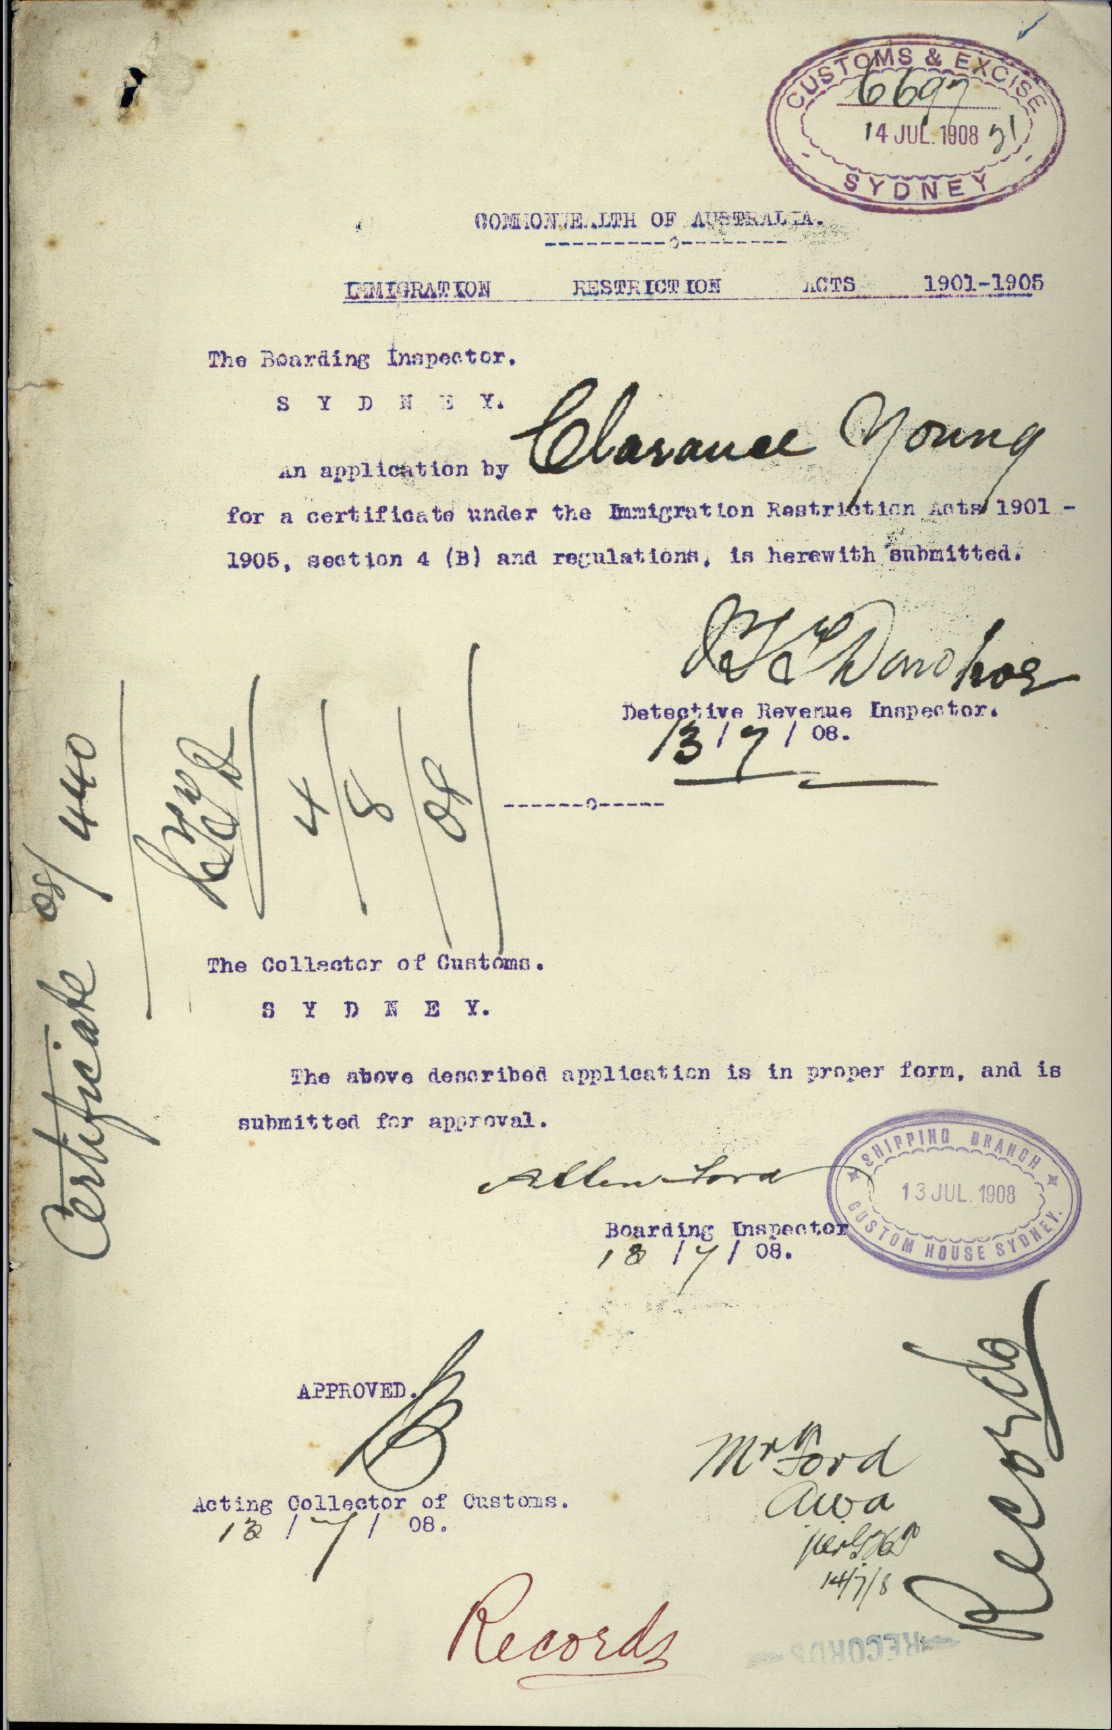 CUSTOMS & EXCISE
6697
14 JUL. 1908
SYDNEY
COMMONWEALTH OF AUSTRALIA.
--------o--------
IMMIGRATION RESTRICTION ACTS 1901-1905
The Boarding Inspector.
S Y D N E Y.
An application by Clarance Young
for a certificate under the Immigration Restriction Acts 1901 -
1905, section 4 (B) and regulations, is herewith submitted.
Donohoe
Detective Revenue Inspector.
13/7/08.
------o-----
Certificate 08/440
4/8/08
The Collector of Customs.
S Y D N E Y.
The above described application is in proper form, and is
submitted for approval.
Allen Ford
Boarding Inspector
13/7/08.
SHIPPING BRANCH
13 JUL. 1908
CUSTOM HOUSE SYDNEY.
APPROVED.
Acting Collector of Customs.
13/7/08.
Mr Ford
14/7/8
Records
Records
RECORDS